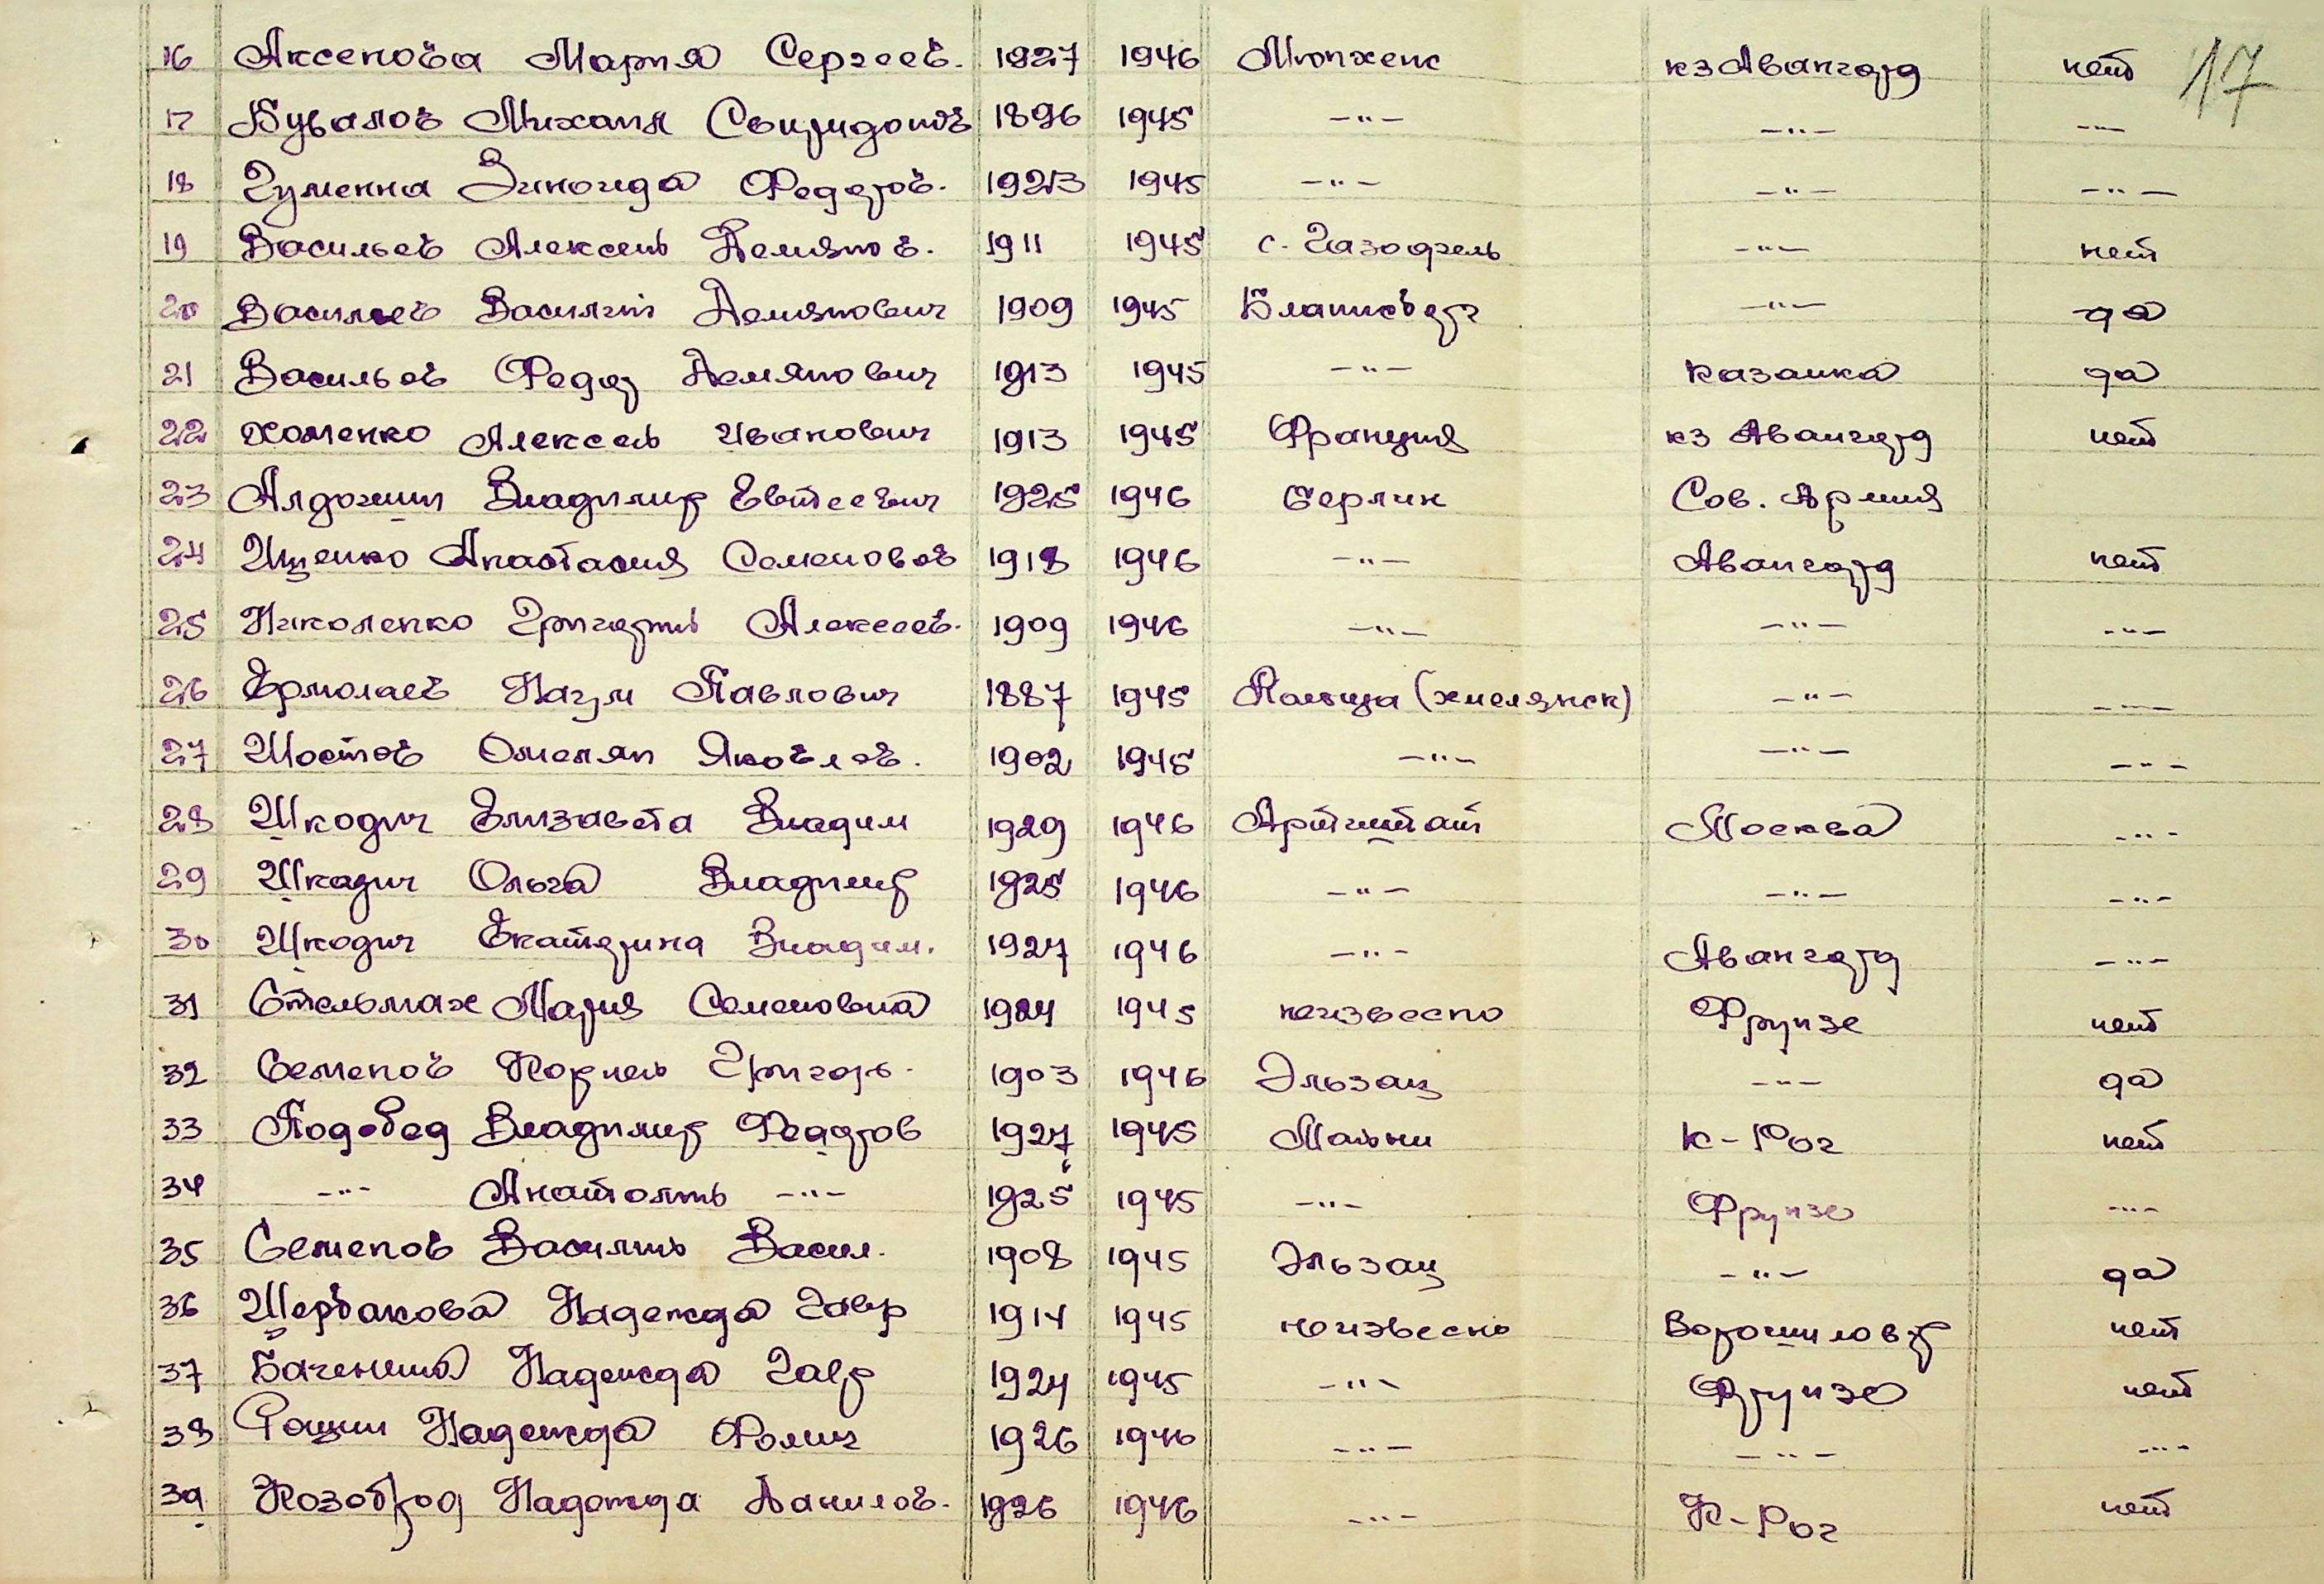 17
16 Аксенова Мария Сергеев. 1927 1946 Мюнхенк кз Авангард нет
17 Бувалов Михаил Свиридонов 1896 1945 -"- -"- -"-
18 Гуменна Зинаида Федоров. 1923 1945 -"- -"- -"-
19 Васильев Алексей Демянов. 1911 1945 с. Газофель -"- нет
20 Васильев Василий Демянович 1909 1945 Блансберг -"- да
21 Васильев Федор Демянович 1913 1945 -"- Казанка да
22 Хоменко Алексей Иванович 1913 1945 Франция кз Авангард нет
23 Алдошин Владимир Евтеевич 1925 1946 Берлин Сов. Армия
24 Ищенко Анастасия Семеновов 1918 1946 -"- Авангард нет
25 Николенко Григорий Алексеев. 1909 1946 -"- -"- -"-
26 Ермолаев Наум Павлович 1887 1945 Польща (хмелянск) -"- -"-
27 Шостов Омелян Яковлев. 1902 1945 -"- -"- -"-
28 Шкодич Елизавета Владим 1929 1946 Артиштат Москва -"-
29 Шкодич Ольга Владимир 1925 1946 -"- -"- -"-
30 Шкодич Екатерина Владим. 1927 1946 -"- Авангард -"-
31 Стельмах Мария Семеновна 1924 1945 неизвесно Фрунзе нет
32 Семенов Корней Григорь. 1903 1946 Эльзац -"- да
33 Подобед Владимир Федоров 1927 1945 Мальни К-Рог нет
34 -"- Анатолий -"- 1925 1945 -"- Фрунзе -"-
35 Семенов Василий Васил. 1908 1945 Эльзац -"- да
36 Щербакова Надежда Гавр 1914 1945 неизвесно Ворошиловгр нет
37 Надежда Гавр 1924 1945 -"- Фрунзе нет
38 Надежда Фомин 1926 1946 -"- -"- -"-
39 Козоброд Надежда Данилов. 1926 1946 -"- К-Рог нет